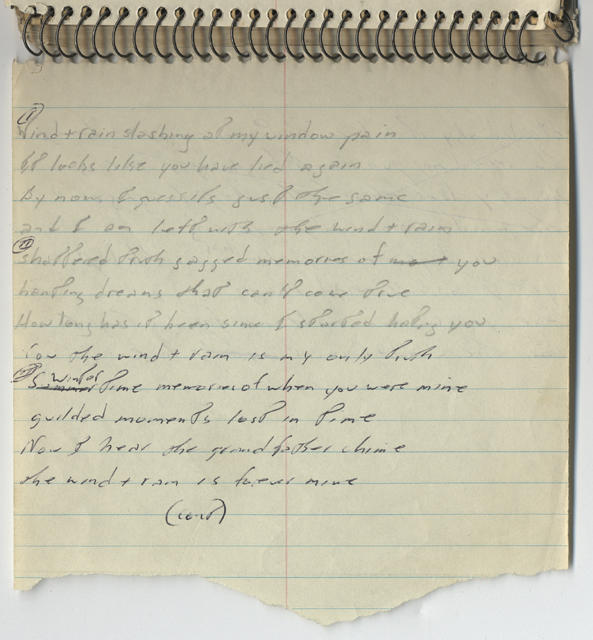 I
Wind + rain slashing at my window pain
It looks like you have lied again
By now I guess its just the same
and I am left with the wind + rain
II
shattered truth jagged memories of you
hanting dreams that can't come true
How long has it been since I started hating you
the wind + rain is my only truth
III
winter
time memories of when you were mine
guilded moments lost in time
Now I hear the grandfather chime
the wind + rain is forever mine
(cont)